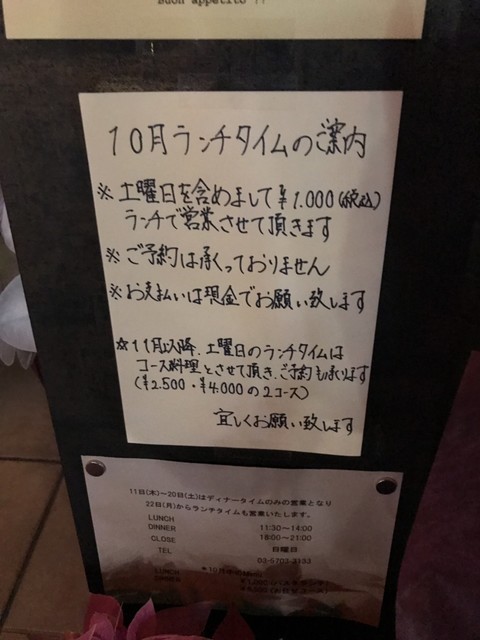 Buon appetito !!
10月ランチタイムのご案内
※ 土曜日を含めまして ¥1.000(税込)
ランチで営業させて頂きます
※ ご予約は承くっておりません
※ お支払いは現金でお願い致します
☆ 11月以降、土曜日のランチタイムは
コース料理とさせて頂き、ご予約も承ります
(¥2.500・¥4.000の2コース)
宜しくお願い致します
11日(木)~20日(土)はディナータイムのみの営業となり
22日(月)からランチタイムも営業いたします。
LUNCH 11:30~14:00
DINNER 18:00~21:00
CLOSE 日曜日
TEL
LUNCH